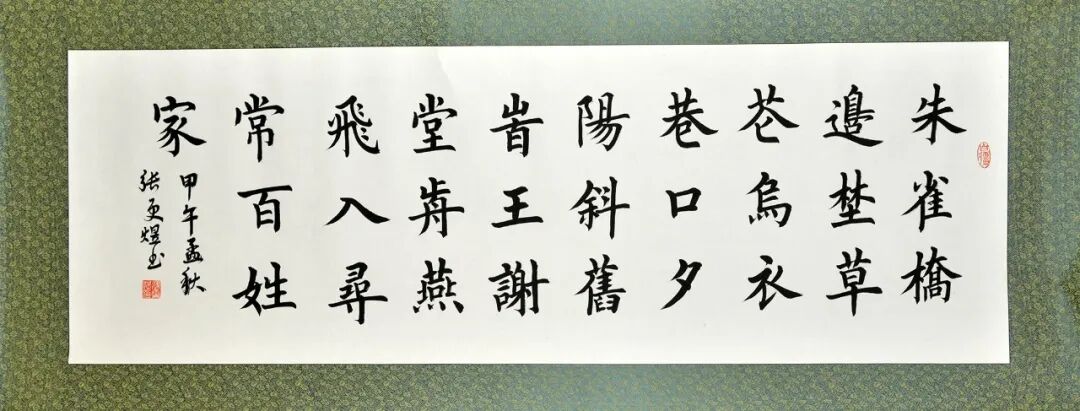 朱雀橋
邊埜草
芲烏衣
巷口夕
陽斜舊
旹王謝
堂歬燕
飛入尋
常百姓
家
甲午孟秋
张更煜